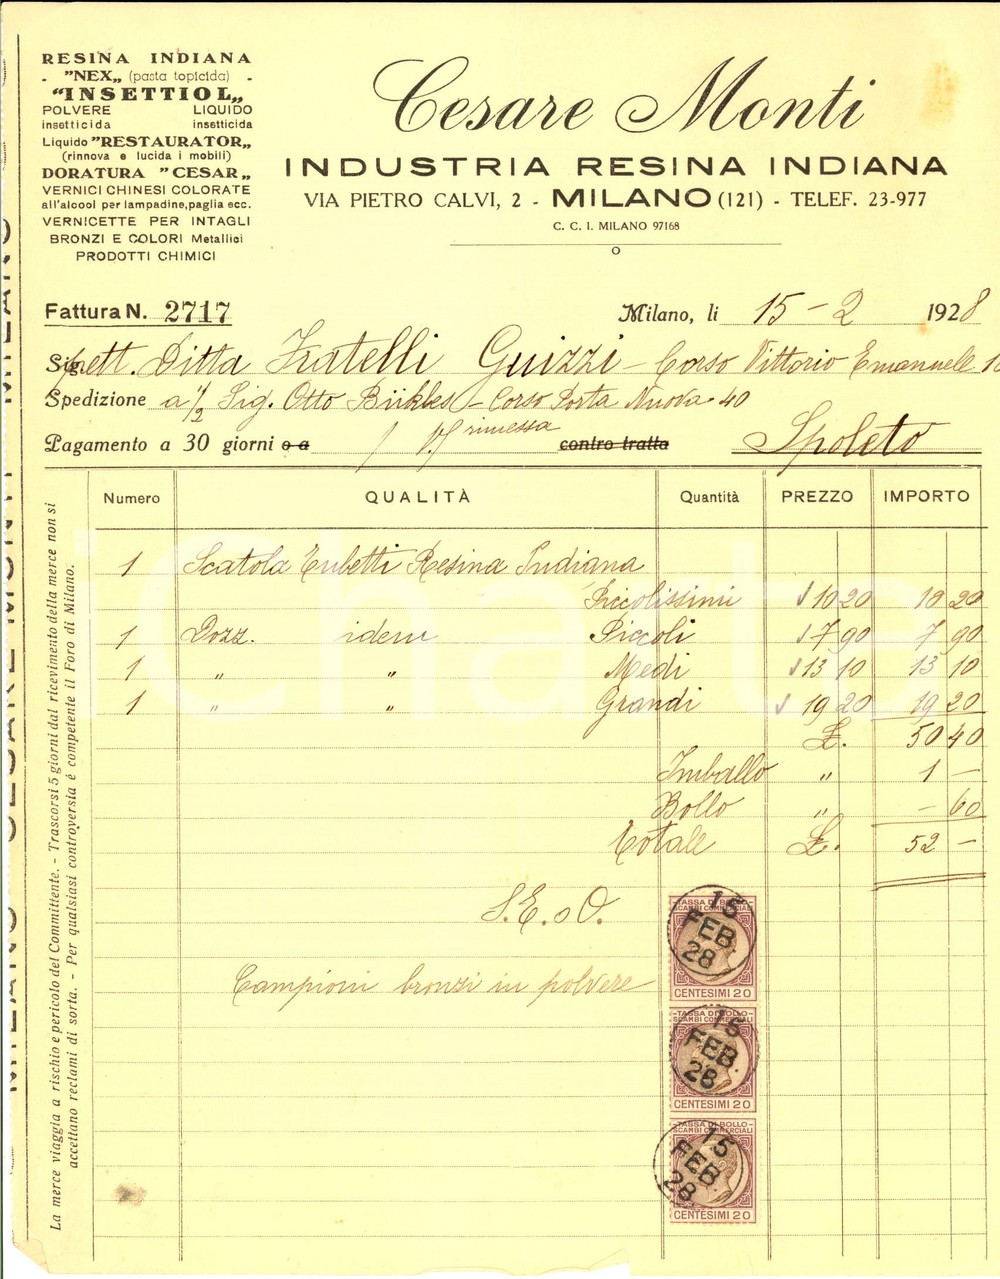 RESINA INDIANA
- "NEX„ (pasta topicida) -
"INSETTIOL„
POLVERE LIQUIDO
insetticida insetticida
Liquido "RESTAURATOR„
(rinnova e lucida i mobili)
DORATURA "CESAR„
VERNICI CHINESI COLORATE
all'alcool per lampadine, paglia ecc.
VERNICETTE PER INTAGLI
BRONZI E COLORI Metallici
PRODOTTI CHIMICI
Cesare Monti
INDUSTRIA RESINA INDIANA
VIA PIETRO CALVI, 2 - MILANO (121) - TELEF. 23-977
C. C. I. MILANO 97168
Fattura N. 2717
Milano, li 15 - 2 1928
Spett. Ditta Fratelli Guizzi - Corso Vittorio Emanuele
Spedizione a ½ Sig. Otto - Corso Porta Nuova 40
Pagamento a 30 giorni o a rimessa contro tratta Spoleto
Numero QUALITÀ Quantità PREZZO IMPORTO
1 Scatola Tubetti Resina Indiana
Piccolissimi 10 20 10 20
1 Dozz. idem Piccoli 7 90 7 90
1 " " Medi 13 10 13 10
1 " " Grandi 19 20 19 20
£. 50 40
Imballo " 1 -
Bollo " - 60
Totale £. 52 -
S. E. o O.
Campioni bronzi in polvere
TASSA DI BOLLO
SCAMBI COMMERCIALI
15 FEB. 28
CENTESIMI 20
TASSA DI BOLLO
SCAMBI COMMERCIALI
15 FEB. 28
CENTESIMI 20
TASSA DI BOLLO
SCAMBI COMMERCIALI
15 FEB. 28
CENTESIMI 20
La merce viaggia a rischio e pericolo del Committente. - Trascorsi 5 giorni dal ricevimento della merce non si
accettano reclami di sorta. - Per qualsiasi controversia é competente il Foro di Milano.
MILANO CESARE MONTI MILANO
iCharta